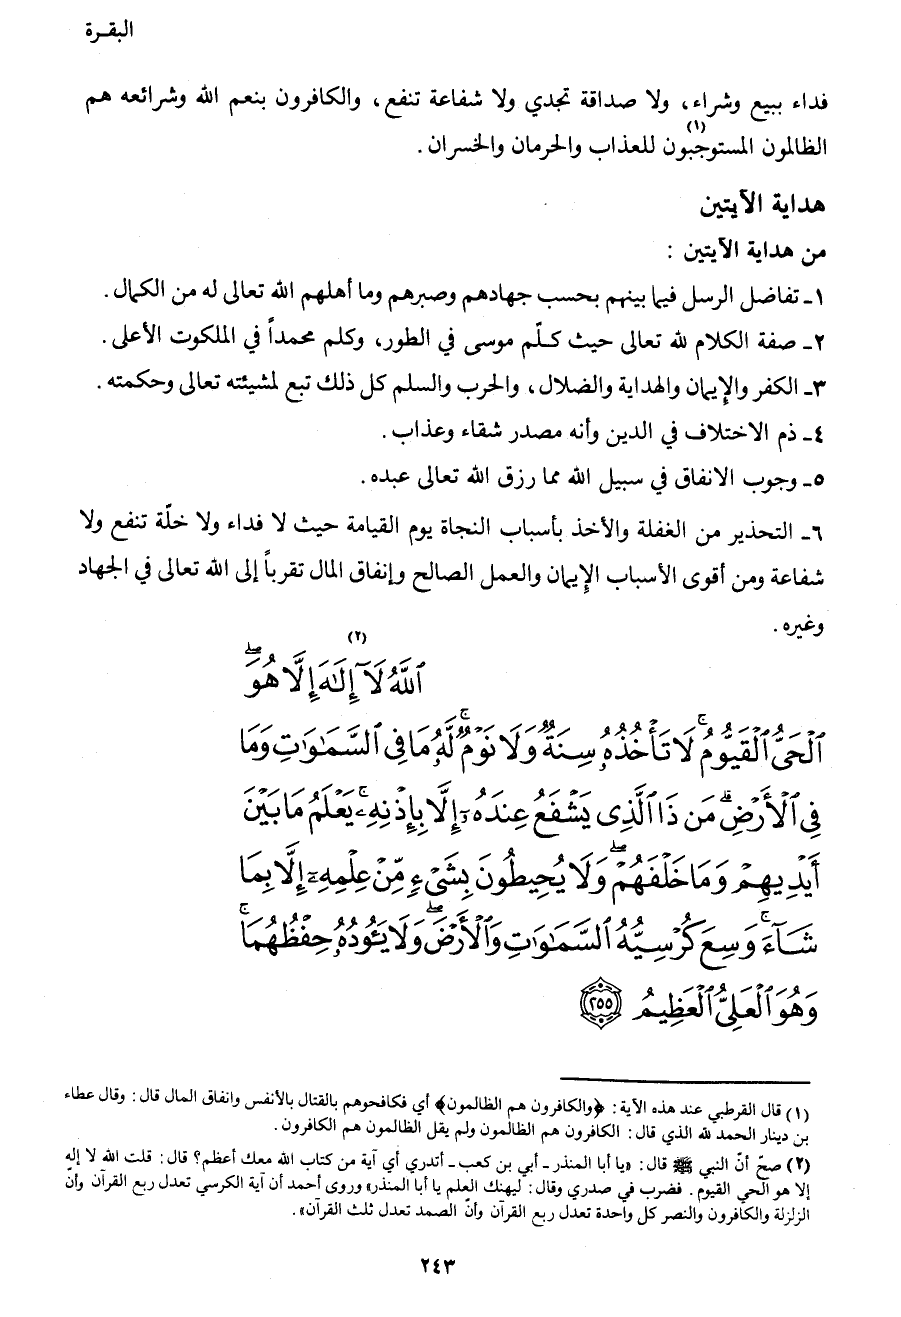 البقـرة
فداء ببيع وشراء، ولا صداقة تجدي ولا شفاعة تنفع، والكافرون بنعم الله وشرائعه هم
الظالمون المستوجبون(١) للعذاب والحرمان والخسران.
هداية الآيتين
من هداية الآيتين :
١ـ تفاضل الرسل فيما بينهم بحسب جهادهم وصبرهم وما أهلهم الله تعالى له من الكمال.
٢ـ صفة الكلام لله تعالى حيث كلّم موسى في الطور، وكلم محمداً في الملكوت الأعلى.
٣ـ الكفر والإيمان والهداية والضلال، والحرب والسلم كل ذلك تبع لمشيئته تعالى وحكمته.
٤ـ ذم الاختلاف في الدين وأنه مصدر شقاء وعذاب.
٥ـ وجوب الانفاق في سبيل الله مما رزق الله تعالى عبده.
٦ـ التحذير من الغفلة والأخذ بأسباب النجاة يوم القيامة حيث لا فداء ولا خلّة تنفع ولا
شفاعة ومن أقوى الأسباب الإيمان والعمل الصالح وإنفاق المال تقرباً إلى الله تعالى في الجهاد
وغيره.
(٢)
ٱللَّهُ لَآ إِلَٰهَ إِلَّا هُوَۖ
ٱلْحَىُّ ٱلْقَيُّومُۚ لَا تَأْخُذُهُۥ سِنَةٌ وَلَا نَوْمٌۚ لَّهُۥ مَا فِى ٱلسَّمَٰوَٰتِ وَمَا
فِى ٱلْأَرْضِۗ مَن ذَا ٱلَّذِى يَشْفَعُ عِندَهُۥٓ إِلَّا بِإِذْنِهِۦۚ يَعْلَمُ مَا بَيْنَ
أَيْدِيهِمْ وَمَا خَلْفَهُمْۖ وَلَا يُحِيطُونَ بِشَىْءٍ مِّنْ عِلْمِهِۦٓ إِلَّا بِمَا
شَآءَۚ وَسِعَ كُرْسِيُّهُ ٱلسَّمَٰوَٰتِ وَٱلْأَرْضَۖ وَلَا يَـُٔودُهُۥ حِفْظُهُمَاۚ
وَهُوَ ٱلْعَلِىُّ ٱلْعَظِيمُ ٢٥٥
(١) قال القرطبي عند هذه الآية: ﴿والكافرون هم الظالمون﴾ أي فكافحوهم بالقتال بالأنفس وانفاق المال قال: وقال عطاء
بن دينار الحمد لله الذي قال: الكافرون هم الظالمون ولم يقل الظالمون هم الكافرون.
(٢) صحّ أنّ النبي ﷺ قال: «يا أبا المنذر ـ أبي بن كعب ـ أتدري أي آية من كتاب الله معك أعظم؟ قال: قلت الله لا إله
إلا هو الحي القيوم. فضرب في صدري وقال: ليهنك العلم يا أبا المنذر» وروى أحمد أن آية الكرسي تعدل ربع القرآن وأنّ
الزلزلة والكافرون والنصر كل واحدة تعدل ربع القرآن وأنّ الصمد تعدل ثلث القرآن».
٢٤٣